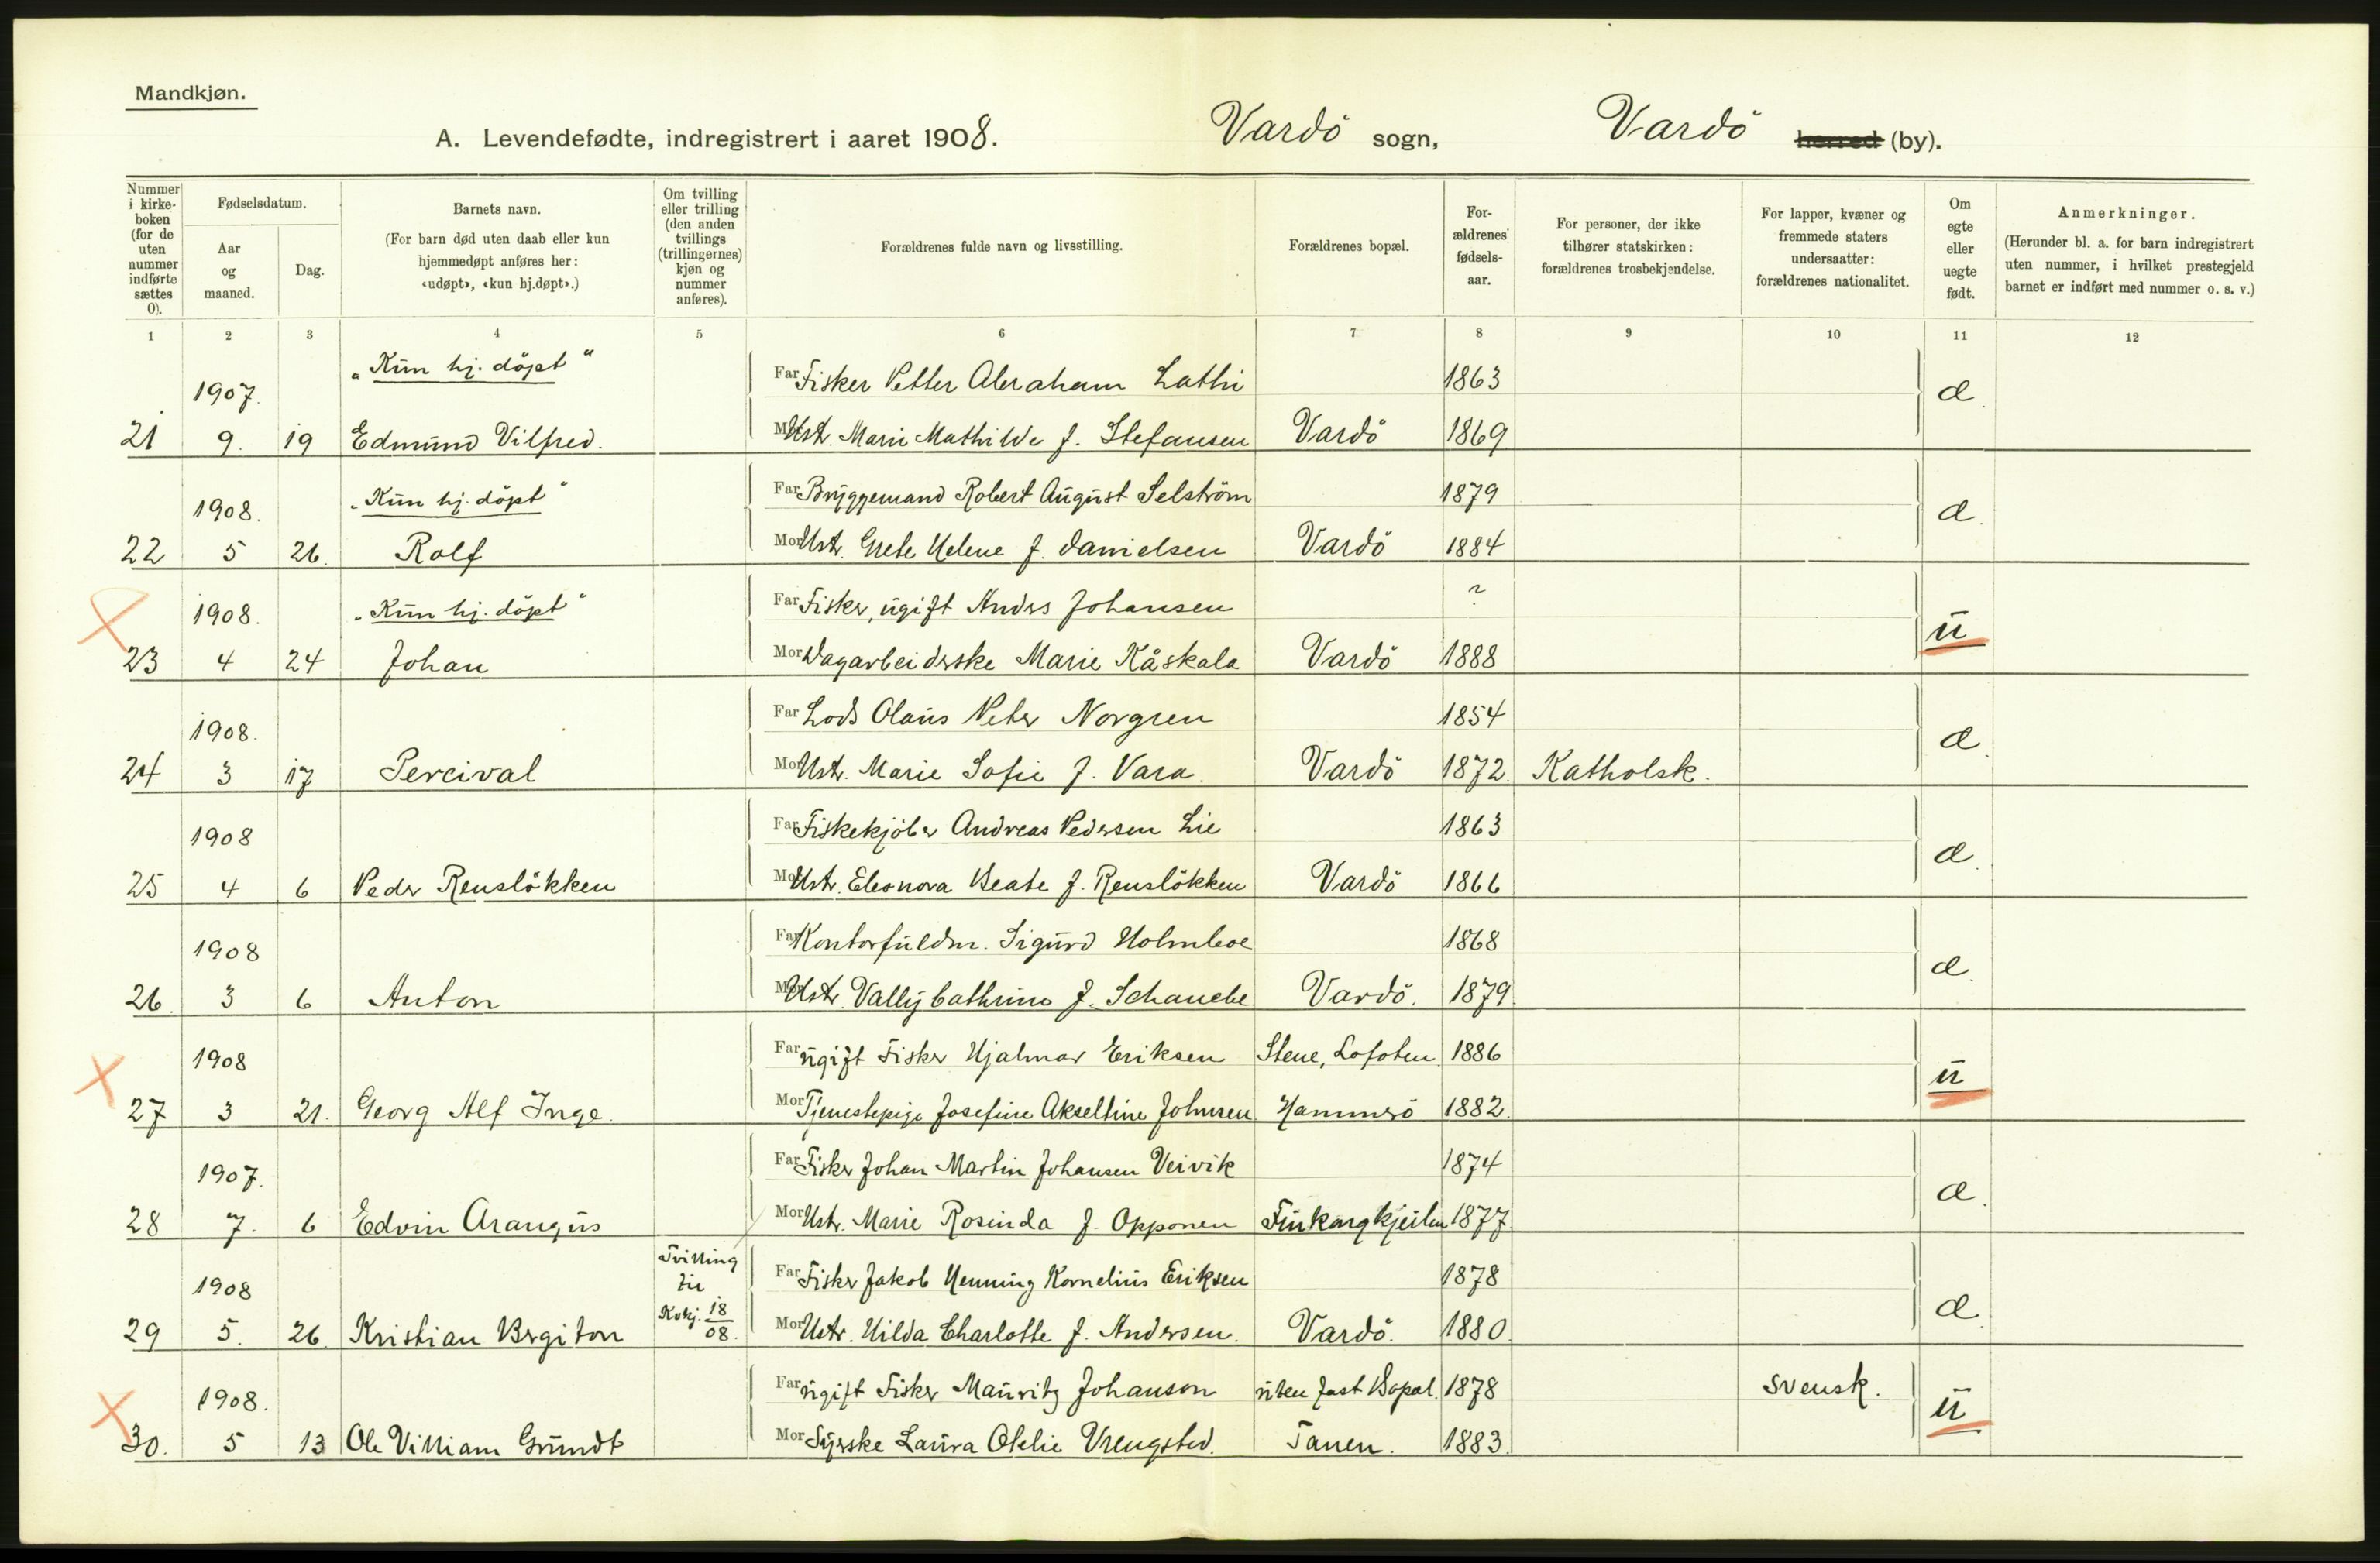 Mandkjøn.
A. Levendefødte, indregistrert i aaret 1908. Vardö sogn, Vardö herred (by).
Nummer i kirkeboken (for de uten nummer indførte sættes 0).
Fødselsdatum.
Aar og maaned.
Dag.
Barnets navn.
(For barn død uten daab eller kun hjemmedøpt anføres her: «udøpt», «kun hj.døpt».)
Om tvilling eller trilling (den anden tvillings (trillingernes) kjøn og nummer anføres).
Forældrenes fulde navn og livsstilling.
Forældrenes bopæl.
Forældrenes fødselsaar.
For personer, der ikke tilhører statskirken: forældrenes trosbekjendelse.
For lapper, kvæner og fremmede staters undersaatter: forældrenes nationalitet.
Om egte eller uegte født.
Anmerkninger.
(Herunder bl. a. for barn indregistrert uten nummer, i hvilket prestegjeld barnet er indført med nummer o. s. v.)
1 2 3 4 5 6 7 8 9 10 11 12
1907. „Kun hj. döpt“ Far Fisker Petter Abraham Lathi 1863 e
21 9. 19 Edmund Vilfred. Mor Hstr. Marie Mathilde f. Stefansen Vardö 1869
1908. „Kun hj. döpt“ Far Bryggemand Robert August Selström 1879 e.
22 5 26. Rolf Mor Hstr. Grete Helene f. Danielsen Vardö 1884
1908. „Kun hj. döpt“ Far Fisker, ugift Anders Johansen ? u
23 4 24 Johan Mor Dagarbeiderske Marie Kåskala Vardö 1888
1908. Far Lods Olaus Peter Norgren 1854 e.
24 3 17 Percival Mor Hstr. Marie Sofie f. Vara. Vardö 1872. Katholsk.
1908 Far Fiskekjöber Andreas Pedersen Lie 1863 e.
25 4 6 Peder Renslökken Mor Hstr. Eleonora Beate f. Renslökken Vardö 1866
1908 Far Kontorfuldm. Sigurd Holmboe 1868 e.
26. 3 6 Anton Mor Hstr. Vally Cathrine f. Schanche Vardö. 1879.
1908 Far ugift Fisker Hjalmar Eriksen Stene, Lofoten. 1886 u
27 3 21. Georg Alf Inge. Mor Tjenestepige Josefine Akseltine Johnsen Hammerö 1882.
1907. Far Fisker Johan Martin Johansen Veivik 1874 e.
28 7. 6 Edvin Arangus Mor Hstr. Marie Rosinda f. Opponen Finkongkjeilen 1877
1908 Tvilling til Far Fisker Jakob Henning Kornelius Eriksen 1878 e.
29 5. 26. Kristian Bergiton Kvkj. 18/08. Mor Hstr. Hilda Charlotte f. Andersen. Vardö. 1880.
1908. Far ugift Fisker Mauritz Johanson uten fast Bopæl. 1878 svensk. u
30. 5 13 Ole Villiam Grundt Mor Syerske Laura Otelie Vrengsted. Tanen. 1883.